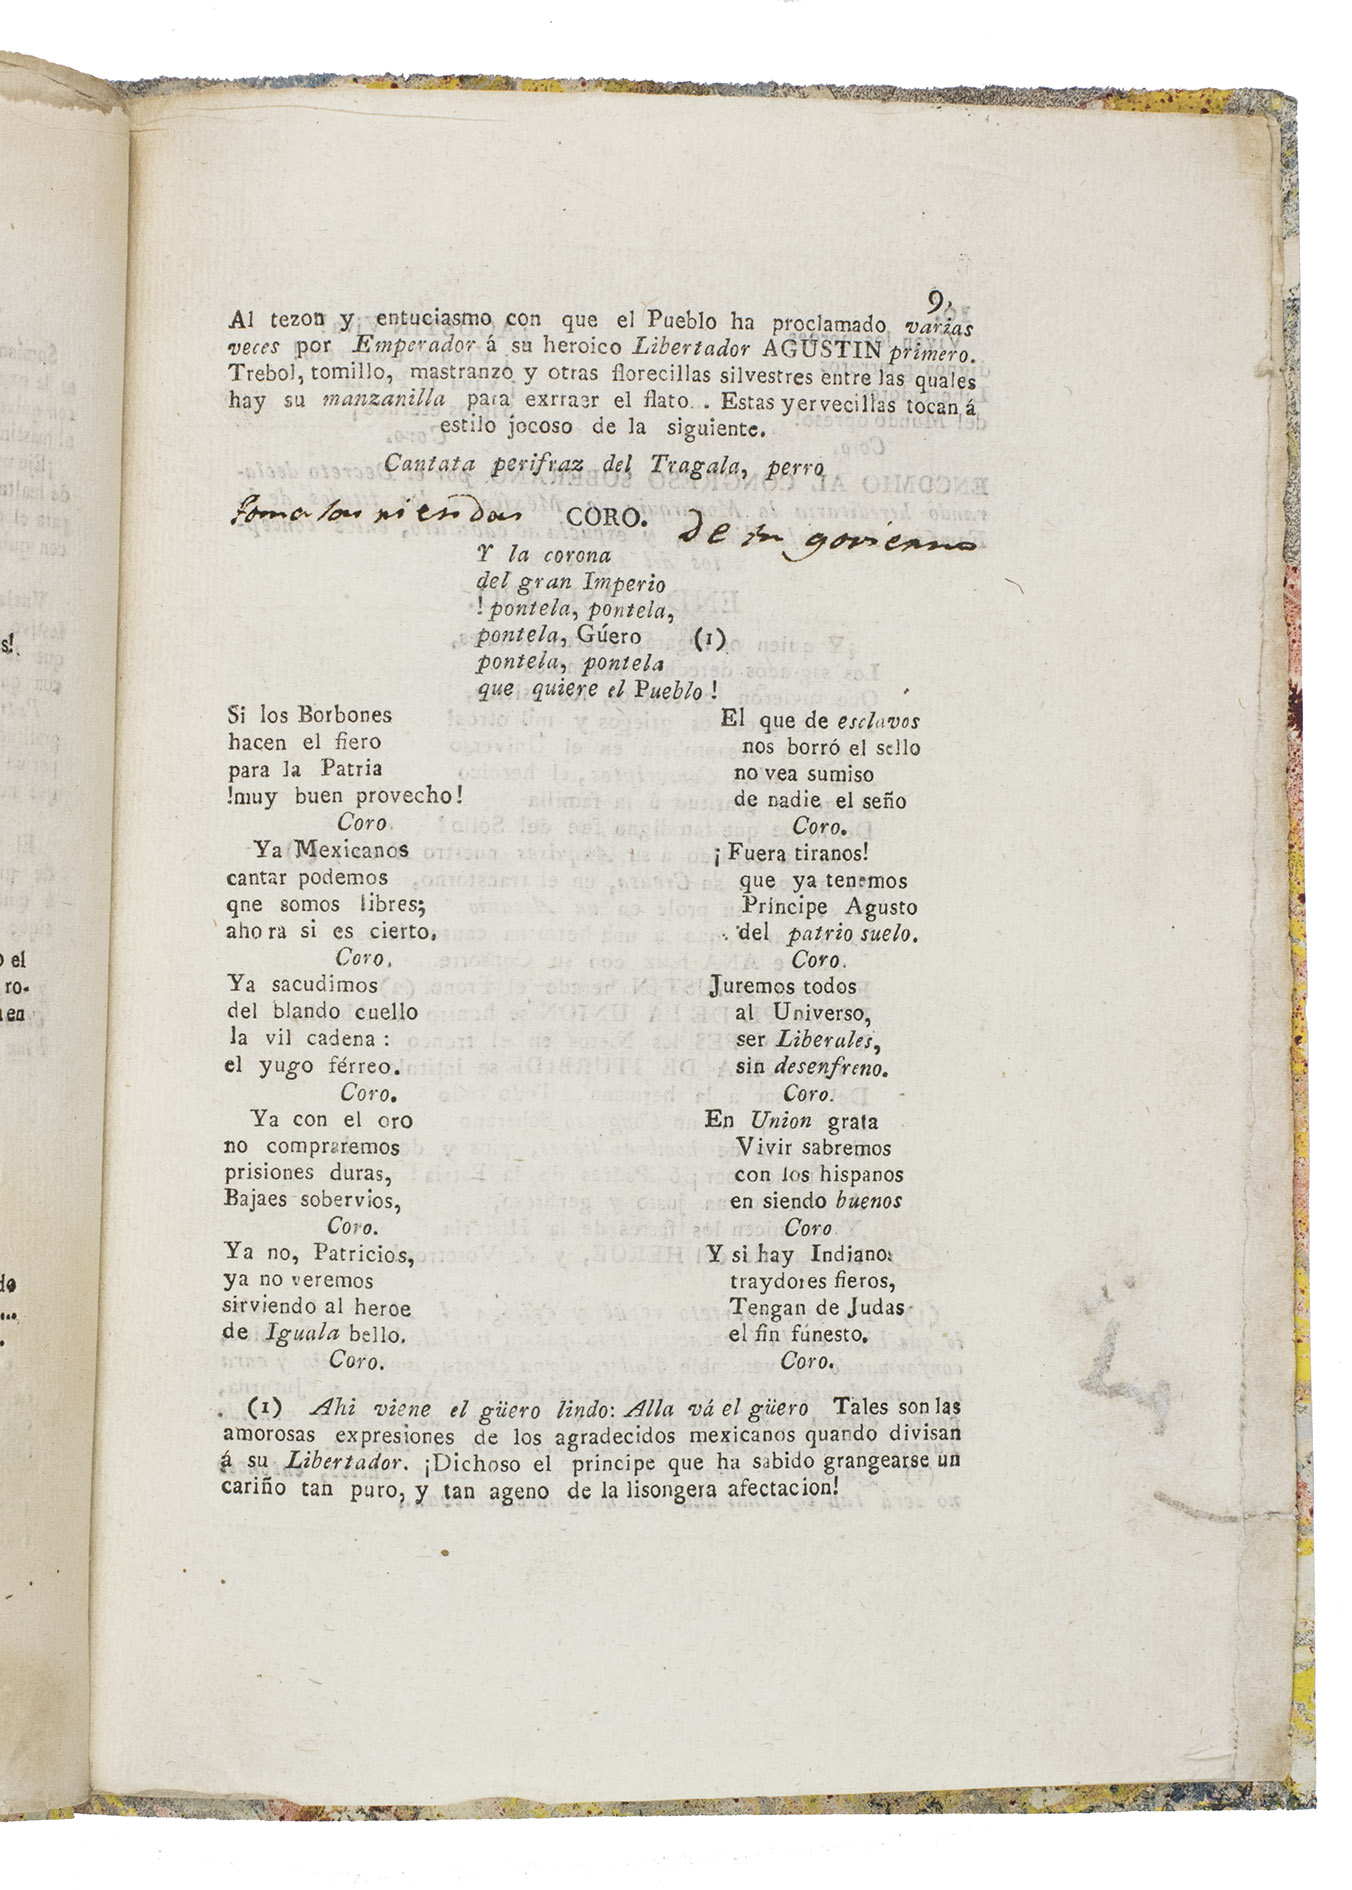 9.
Al tezon y entuciasmo con que el Pueblo ha proclamado varias
veces por Emperador á su heroico Libertador AGUSTIN primero.
Trebol, tomillo, mastranzo y otras florecillas silvestres entre las quales
hay su manzanilla para exrraer el flato.. Estas yervecillas tocan á
estilo jocoso de la siguiente.
Cantata perifraz del Tragala, perro
toma las riendas CORO. De tu govierno
Y la corona
del gran Imperio
! pontela, pontela,
pontela, Gúero (1)
pontela, pontela
que quiere el Pueblo !
Si los Borbones
hacen el fiero
para la Patria
!muy buen provecho!
Coro.
Ya Mexicanos
cantar podemos
qne somos libres;
ahora si es cierto.
Coro.
Ya sacudimos
del blando cuello
la vil cadena :
el yugo férreo.
Coro.
Ya con el oro
no compraremos
prisiones duras,
Bajaes sobervios,
Coro.
Ya no, Patricios,
ya no veremos
sirviendo al heroe
de Iguala bello.
Coro.
El que de esclavos
nos borró el sello
no vea sumiso
de nadie el seño
Coro.
¡Fuera tiranos!
que ya tenemos
Príncipe Agusto
del patrio suelo.
Coro.
Juremos todos
al Universo,
ser Liberales,
sin desenfreno.
Coro.
En Union grata
Vivir sabremos
con los hispanos
en siendo buenos
Coro
Y si hay Indianos
traydores fieros,
Tengan de Judas
el fin funesto.
Coro.
(1) Ahi viene el güero lindo: Alla vá el güero Tales son las
amorosas expresiones de los agradecidos mexicanos quando divisan
á su Libertador. ¡Dichoso el principe que ha sabido grangearse un
cariño tan puro, y tan ageno de la lisongera afectacion!